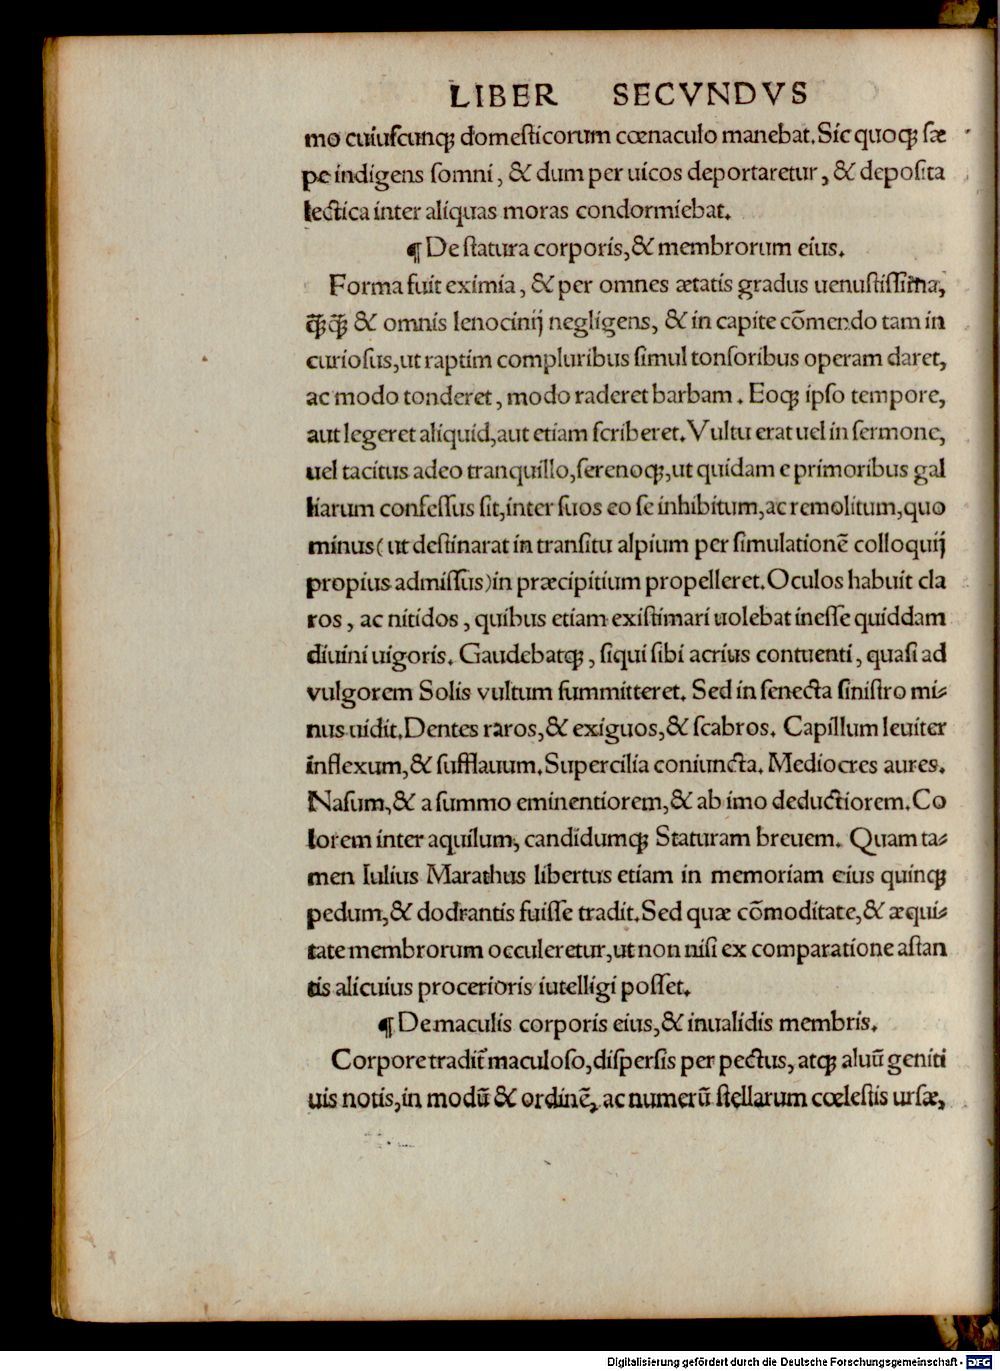 LIBER SECVNDVS
mo cuiuſcunqꝫ domeſticorum cœnaculo manebat. Sic quoqꝫ ſæ
pe indigens ſomni, & dum per uicos deportaretur, & depoſita
lectica inter aliquas moras condormiebat.
¶ De ſtatura corporis, & membrorum eius.
Forma fuit eximia, & per omnes ætatis gradus uenuſtiſſima,
q̃qꝫ̃ & omnis lenocinij negligens, & in capite cõmendo tam in
curioſus, ut raptim compluribus ſimul tonſoribus operam daret,
ac modo tonderet, modo raderet barbam. Eoqꝫ ipſo tempore,
aut legeret aliquid, aut etiam ſcriberet. Vultu erat uel in ſermone,
uel tacitus adeo tranquillo, ſerenoqꝫ, ut quidam e primoribus gal
liarum confeſſus ſit, inter ſuos eo ſe inhibitum, ac remolitum, quo
minus (ut deſtinarat in tranſitu alpium per ſimulationẽ colloquij
propius admiſſus) in præcipitium propelleret. Oculos habuit cla
ros, ac nitidos, quibus etiam exiſtimari uolebat ineſſe quiddam
diuini uigoris. Gaudebatqꝫ, ſiqui ſibi acrius contuenti, quaſi ad
vulgorem Solis vultum ſummitteret. Sed in ſenecta ſiniſtro mi⸗
nus uidit. Dentes raros, & exiguos, & ſcabros. Capillum leuiter
inflexum, & ſufflauum. Supercilia coniuncta. Mediocres aures.
Naſum, & a ſummo eminentiorem, & ab imo deductiorem. Co
lorem inter aquilum, candidumqꝫ Staturam breuem. Quam ta⸗
men Iulius Marathus libertus etiam in memoriam eius quinqꝫ
pedum, & dodrantis fuiſſe tradit. Sed quæ cõmoditate, & æqui⸗
tate membrorum occuleretur, ut non niſi ex comparatione aſtan
tis alicuius procerioris iutelligi poſſet.
¶ De maculis corporis eius, & inualidis membris.
Corpore tradit᷑ maculoſo, diſperſis per pectus, atqꝫ aluũ geniti
uis notis, in modũ & ordinẽ, ac numerũ ſtellarum cœleſtis urſæ,
Digitalisierung gefördert durch die Deutsche Forschungsgemeinschaft - DFG